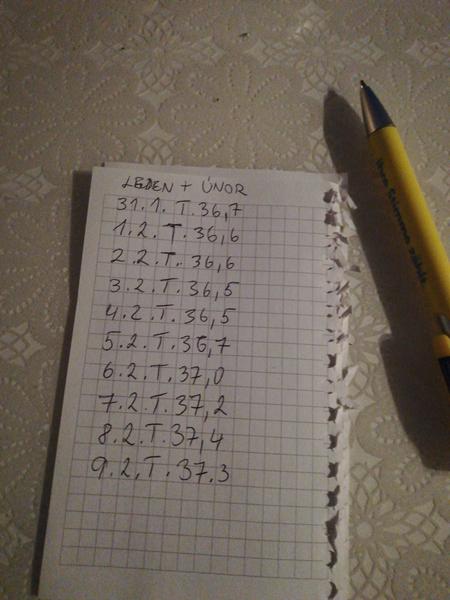 LEDEN + ÚNOR
31.1. T.36,7
1.2. T.36,6
2.2.T. 36,6
3.2.T.36,5
4.2.T.36,5
5.2.T.36,7
6.2.T.37,0
7.2.T.37,2
8.2.T.37,4
9.2.T.37.3
Ihre Stimme zählt